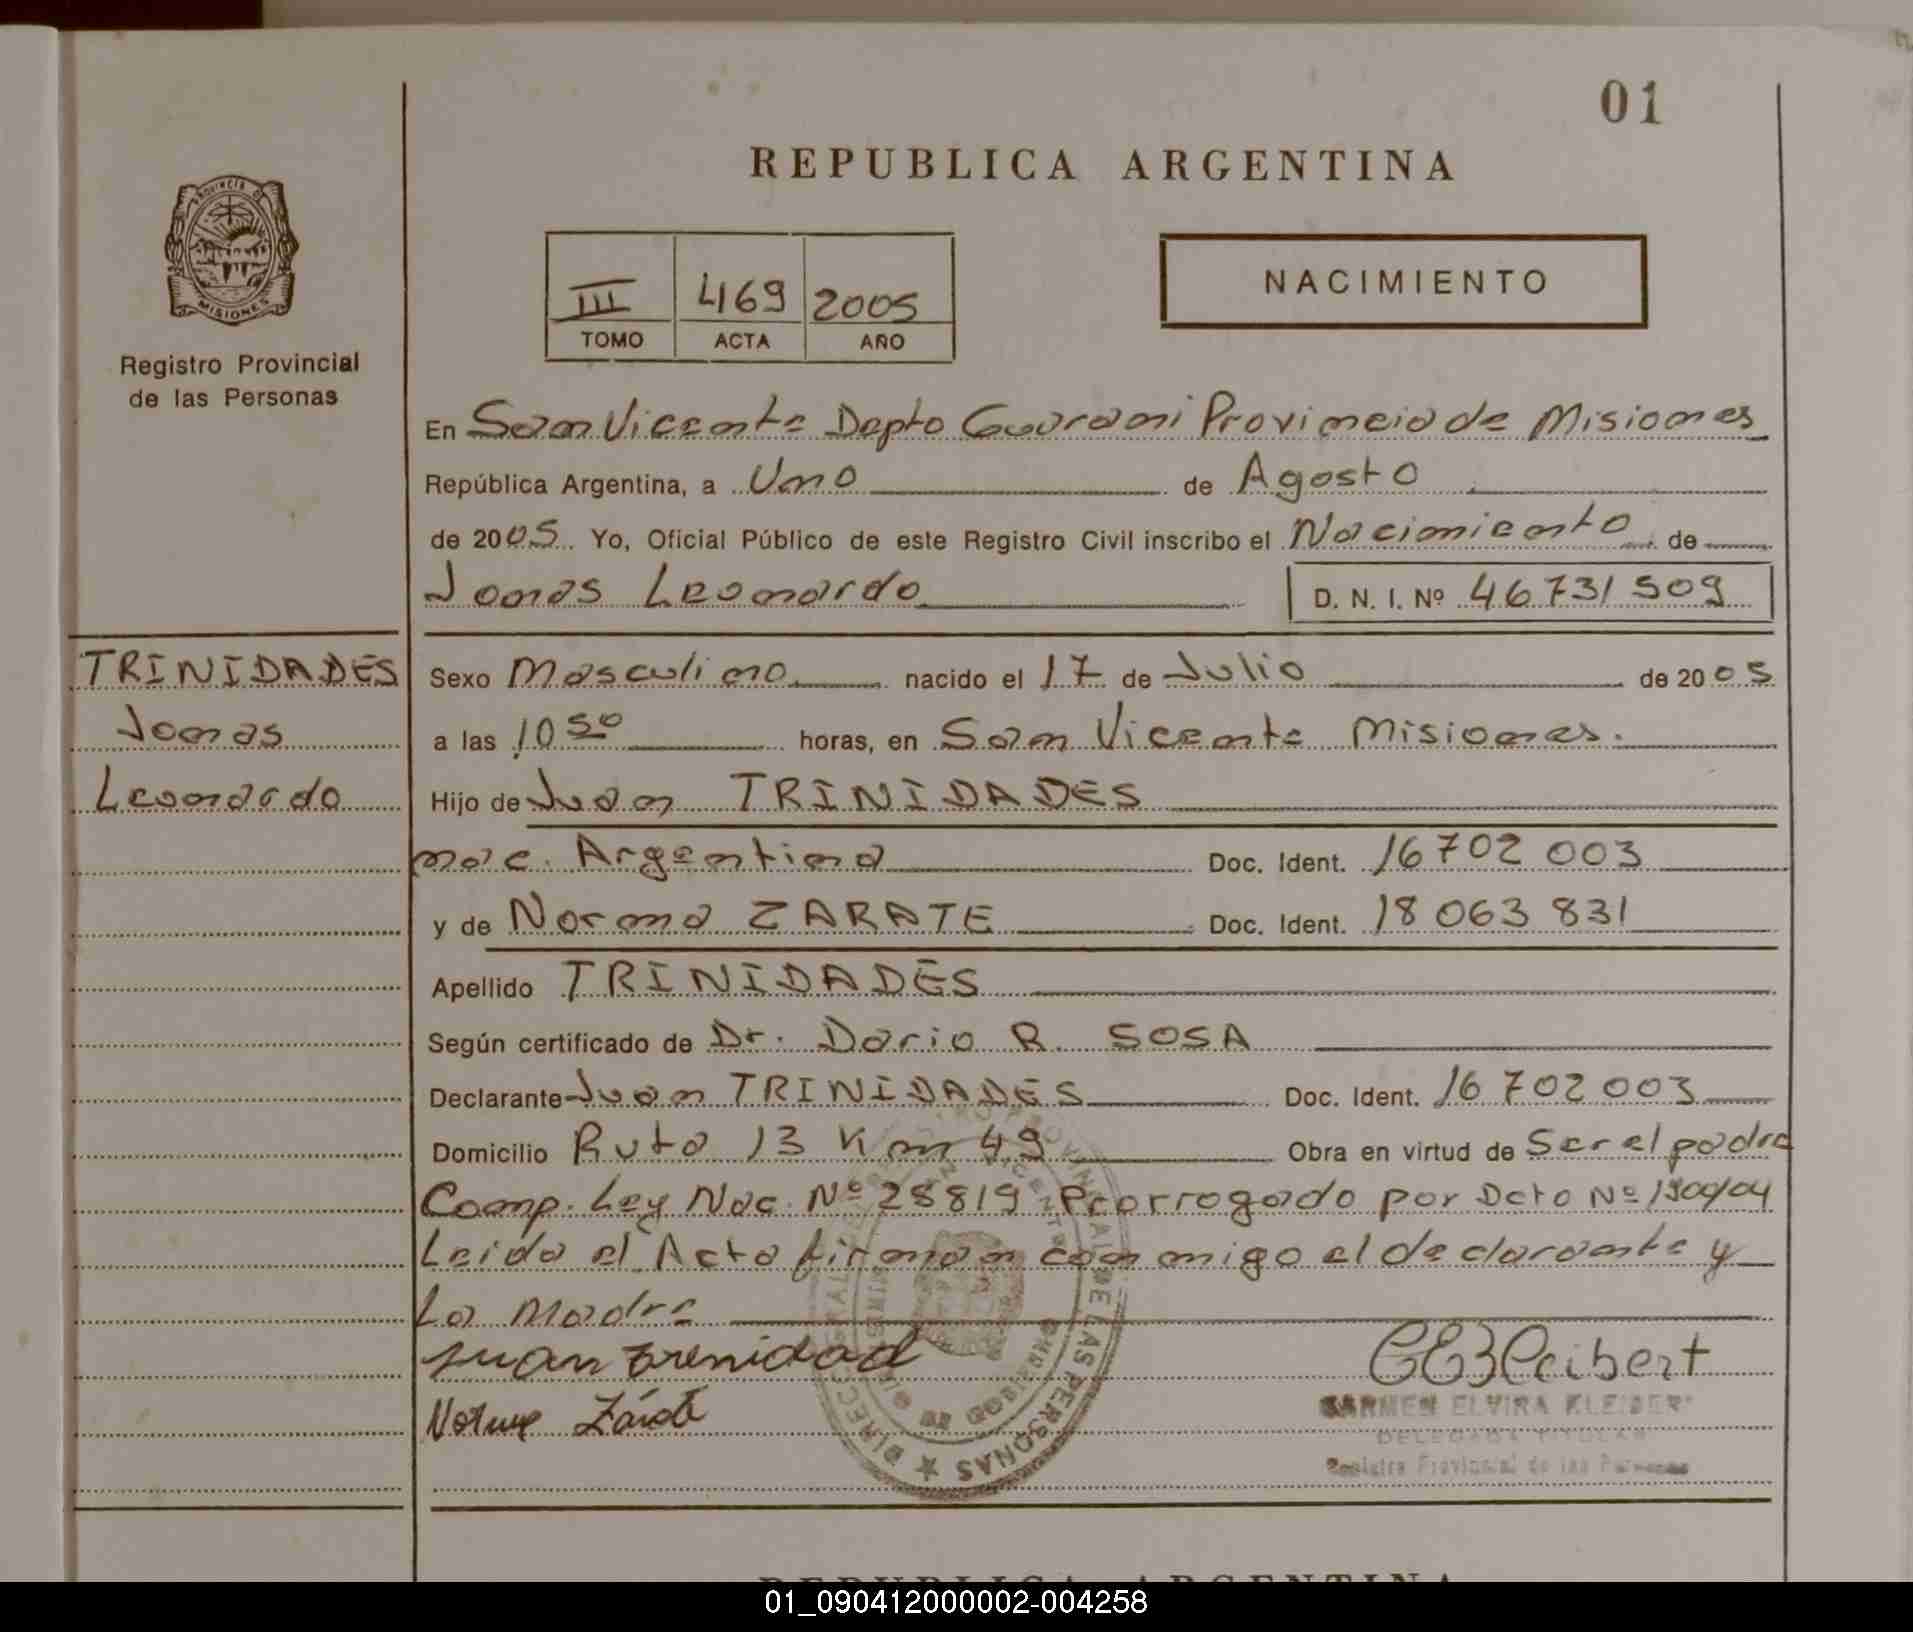 01
REPUBLICA ARGENTINA
PROVINCIA D
MISIONES
Registro Provincial
de las Personas
NACIMIENTO
III 469 2005
TOMO ACTA AÑO
En San Vicente Depto Guarani Provincia de Misiones
República Argentina, a Uno de Agosto
de 2005 Yo, Oficial Público de este Registro Civil inscribo el Nacimiento de
Jonas Leonardo D. N. I. Nº 46731509
TRINIDADES
Jonas
Leonardo
Sexo Masculino nacido el 17 de Julio de 2005
a las 10 50 horas, en San Vicente Misiones.
Hijo de Juan TRINIDADES
nac. Argentina Doc. Ident. 16702 003
y de Norma ZARATE Doc. Ident. 18 063 831
Apellido TRINIDADES
Según certificado de Dr. Dario R. SOSA
Declarante Juan TRINIDADES Doc. Ident. 16 702 003
Domicilio Ruta 13 Km 49 Obra en virtud de Ser el padre
Comp. Ley Nac. Nº 25819 Prorrogado por Dcto Nº
Leida el Acta firman conmigo el declarante y
La Madre
Juan trenidad
Norma Zárate
CARMEN ELVIRA
DELEGADA TITULAR
Registro Provincial de las Personas
DE LAS PERSONAS ★ DIRECC
REPUBLICA ARGENTINA
01_090412000002-004258